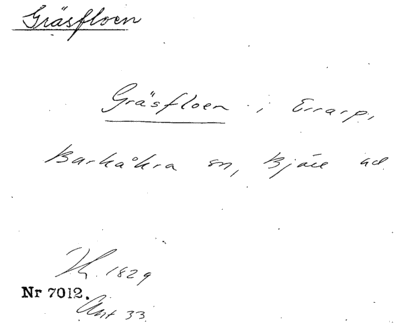 Gräsfloen
Gräsfloen i Errarp,
Barkåkra sn, Bjäre hd
1829
Nr 7012.
Akt 33